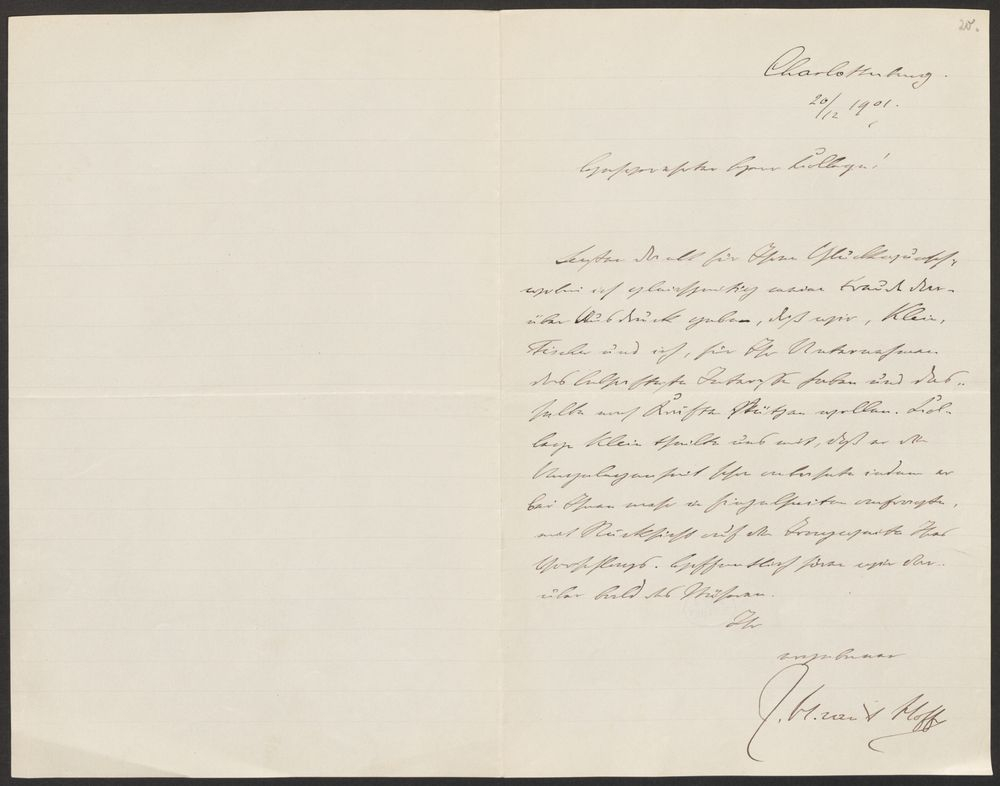 20.
Charlottenburg.
20/12 1901.
Hochgeehrter Herr College!
Besten Dank für Ihren Glückwunsch,
wobei ich gleichzeitig meine Freude dar-
über Ausdruck geben, daß wir, Klein,
Fischer und ich, für Ihr Unternehmen
das lebhafteste Interesse haben und das-
selbe nach Kräften stützen wollen. Col-
lege Klein theilte uns mit, daß er die
Angelegenheit schon indem er
bei Ihnen mehr in Einzelheiten anfragte,
mit Rücksicht auf die Tragweite Ihres
Vorschlags. Hoffentlich hören wir dar-
über bald das Nähere.
Ihr
ergebener
J. H. van't Hoff